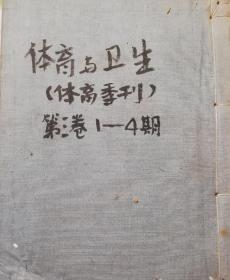 体育与卫生
(体育季刊)
第三卷1—4期